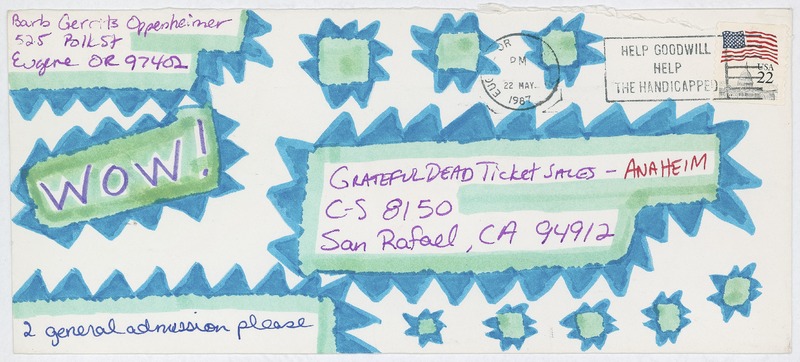 Barb Gerrits Oppenheimer
525 Polk St
Eugene OR 97402
WOW!
EUG OR
PM
22 MAY
1987
HELP GOODWILL
HELP
THE HANDICAPPED
USA
22
GRATEFUL DEAD Ticket SALES - ANAHEIM
C-S 8150
San Rafael, CA 94912
2 general admission please